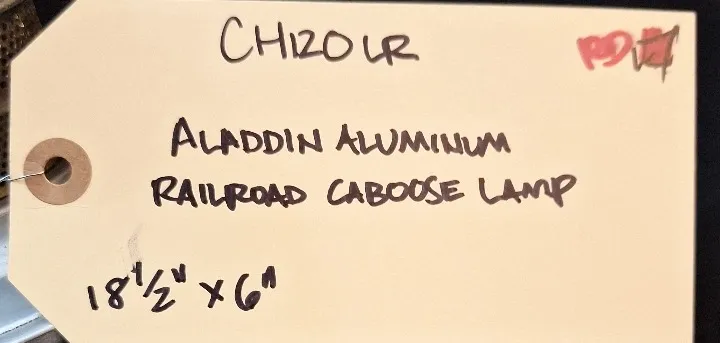 CH120LR
ALADDIN ALUMINUM
RAILROAD CABOOSE LAMP
18 1/2" x 6"